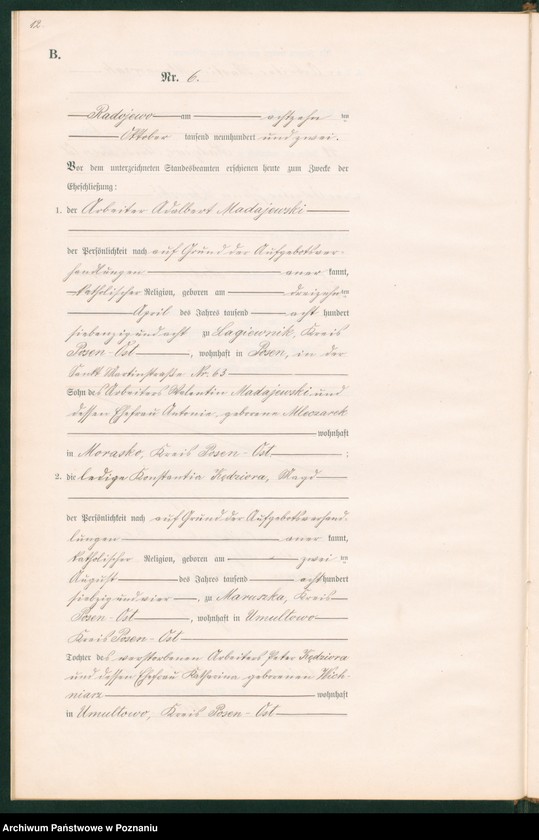 12
B.
Nr. 6.
Radojewo am achtzehn ten
Oktober tausend neunhundert und zwei.
Vor dem unterzeichneten Standesbeamten erschienen heute zum Zwecke der
Eheschließung:
1. der Arbeiter Adalbert Madajewski
der Persönlichkeit nach auf Grund der Aufgebotsver-
handlungen aner kannt,
katholischer Religion, geboren am dreizehn ten
April des Jahres tausend acht hundert
siebenzig und acht zu Lagiewnik, Kreis
Posen-Ost, wohnhaft in Posen, in der
Sankt Martinstraße Nr. 63
Sohn des Arbeiters Valentin Madajewski und
dessen Ehefrau Antonie geborene Mleczarek
wohnhaft
in Morasko, Kreis Posen-Ost ;
2. die ledige Konstantia Kędziora, Magd
der Persönlichkeit nach auf Grund der Aufgebotsverhand-
lungen aner kannt,
katholischer Religion, geboren am zwei ten
August des Jahres tausend acht hundert
siebzig und vier, zu Maruszka, Kreis
Posen-Ost, wohnhaft in Umultowo
Kreis Posen-Ost
Tochter des verstorbenen Arbeiters Peter Kędziora
und dessen Ehefrau Katharina geborenen Wich-
niarz wohnhaft
in Umultowo, Kreis Posen-Ost
Archiwum Państwowe w Poznaniu